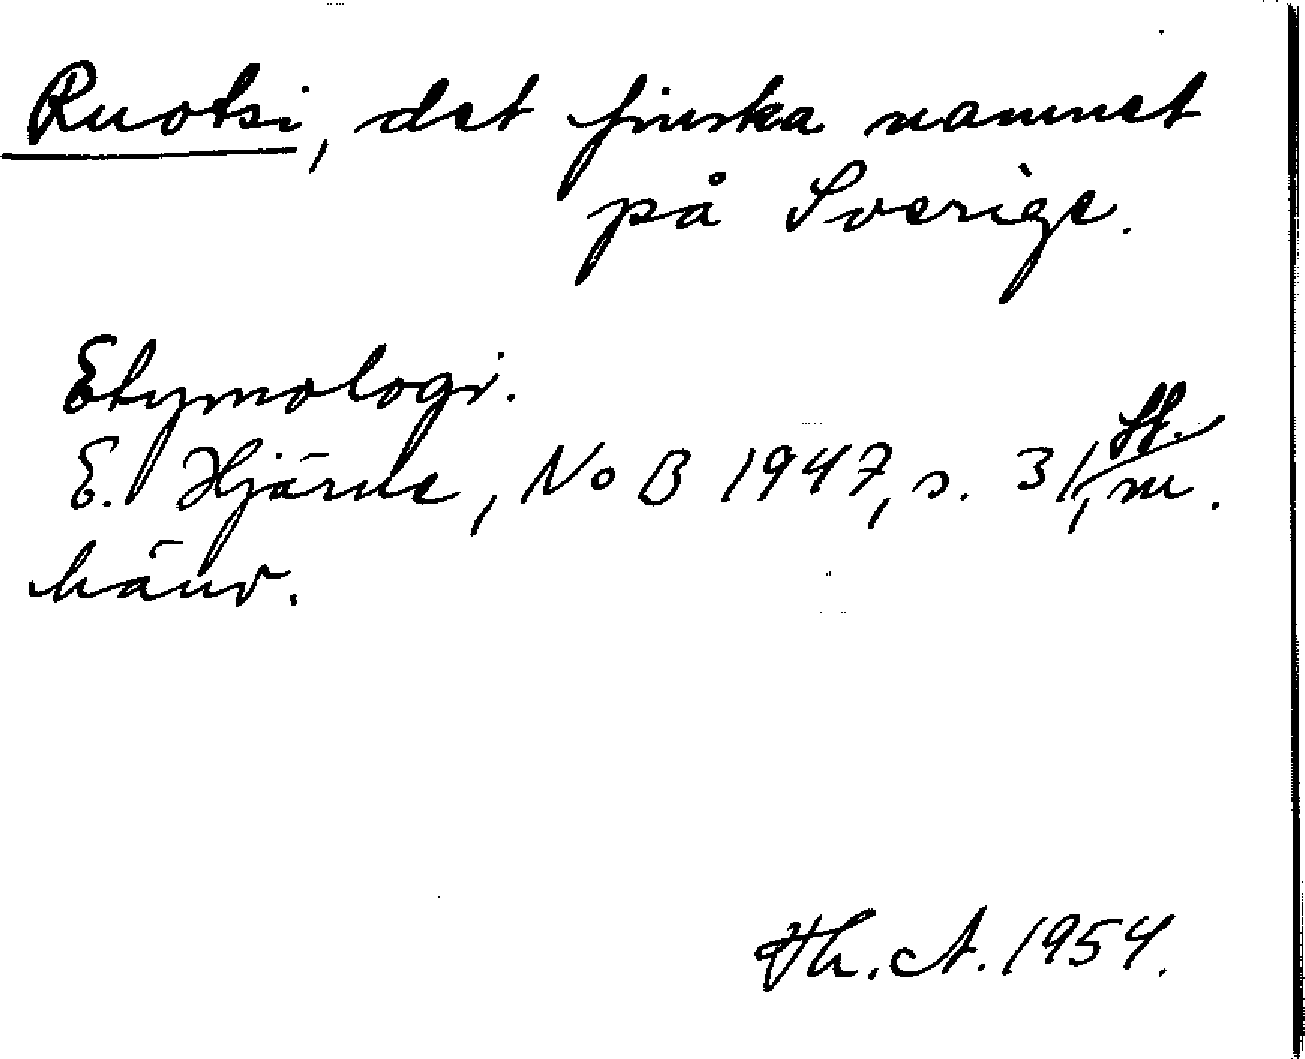 Ruotsi, det finska namnet
på Sverige.
Etymologi.
E. Hjärne, NoB 1947, s. 31, ff. m.
hänv.
Th. A. 1954.